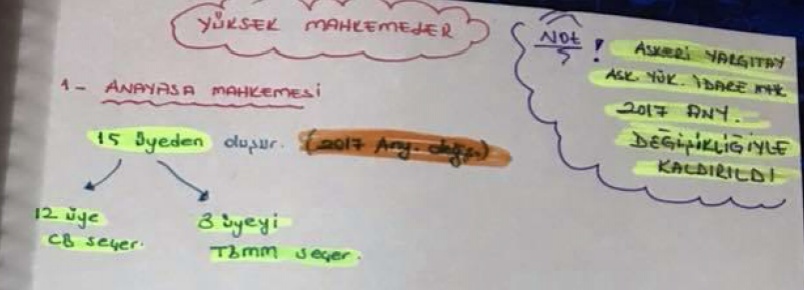 YÜKSEK MAHKEMELER
NOt !
ASKERİ YARGITAY
ASK. YÜK. İDARE MHK
2017 ANY.
DEĞİŞİKLİĞİYLE
KALDIRILDI
1- ANAYASA MAHKEMESİ
15 üyeden oluşur. (2017 Any. değş.)
12 üye
CB seçer.
3 üyeyi
TBMM seçer.